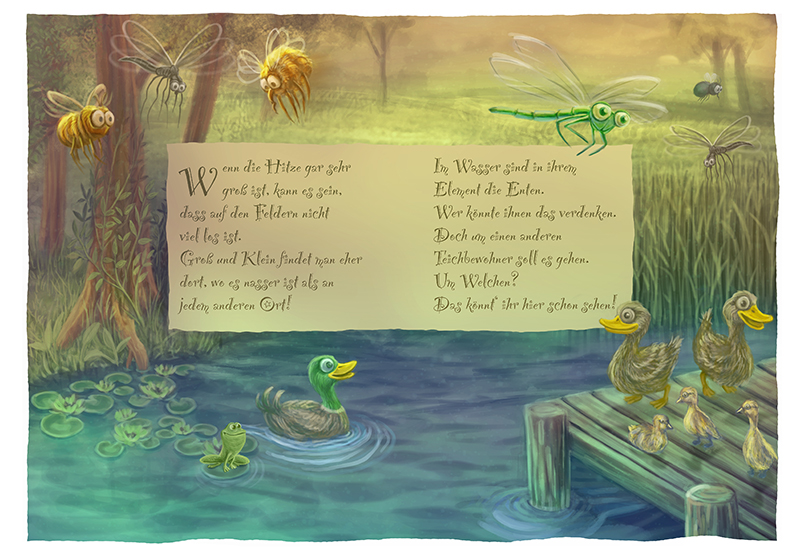 Wenn die Hitze gar sehr
groß ist, kann es sein,
dass auf den Feldern nicht
viel los ist.
Groß und Klein findet man eher
dort, wo es nasser ist als an
jedem anderen Ort!
Im Wasser sind in ihrem
Element die Enten.
Wer könnte ihnen das verdenken.
Doch um einen anderen
Teichbewohner soll es gehen.
Um Welchen?
Das könnt' ihr hier schon sehen!